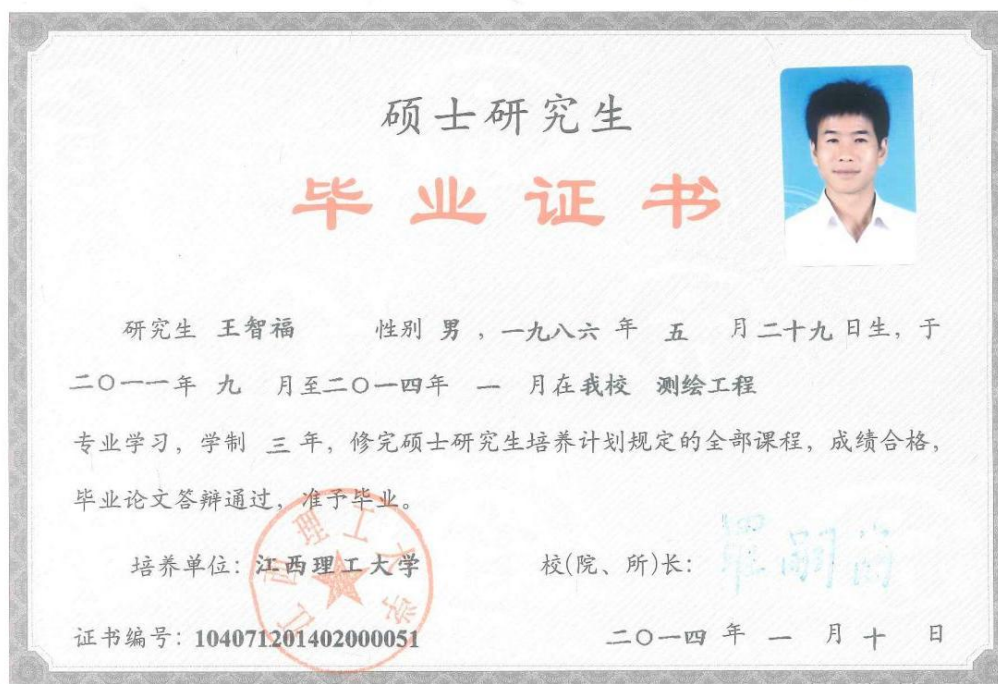 硕士研究生
毕业证书
研究生 王智福 性别 男，一九八六 年 五 月二十九日生，于
二〇一一年 九 月至二〇一四年 一 月在我校 测绘工程
专业学习，学制 三 年，修完硕士研究生培养计划规定的全部课程，成绩合格，
毕业论文答辩通过，准予毕业。
江西理工大学
培养单位：江西理工大学 校(院、所)长：
证书编号：104071201402000051 二〇一四 年 一 月 十 日